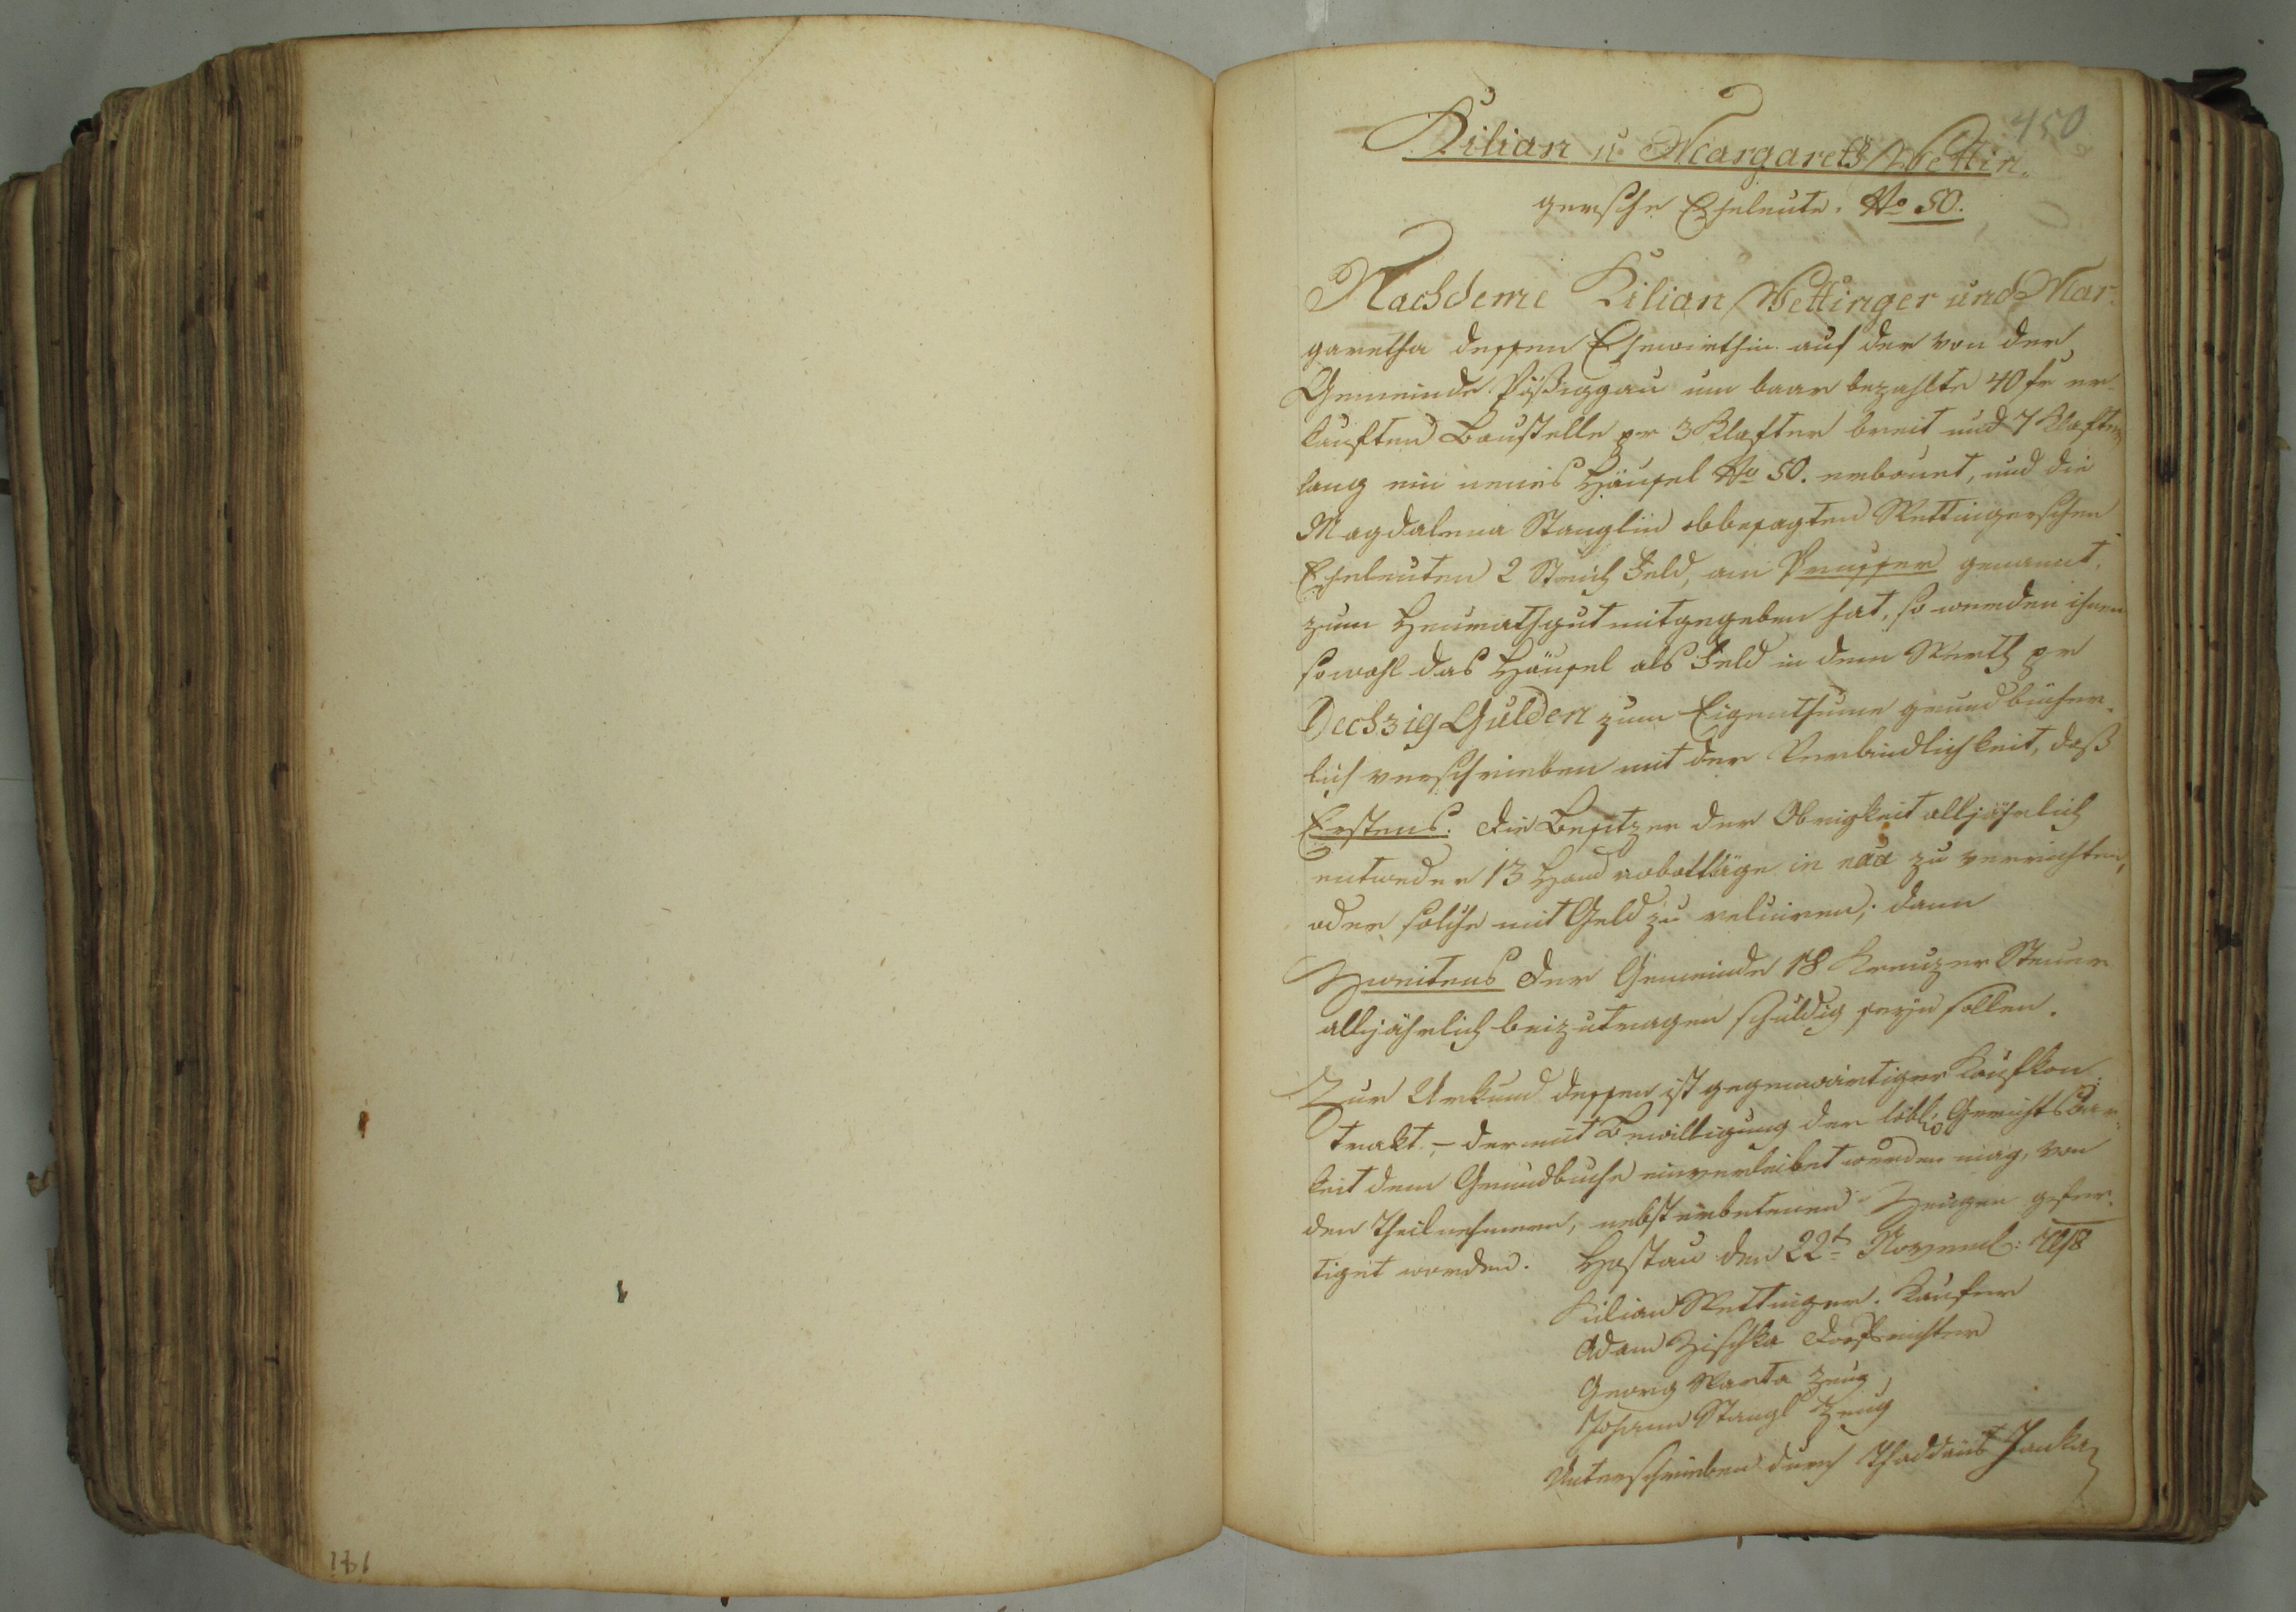 450
Kilian u Margareth Wettin-
gersche Eheleute. No 50.
Nachdeme Kilian Wettinger und Mar-
garetha dessen Ehewirthin auf der von der
Gemeinde Pössiggau um baar bezahlte 40 fr er-
kauften Baustelle pr 3 Klafter breit und 7 Klafter
lang ein neues Häusel No 50. erbauet, und die
Magdalena Stanglin obbesagten Wettingerschen
Eheleuten 2 Strich Feld, am genannt,
zum Heurathgut mitgegeben hat, so werden ihnen
sowohl das Häusel als Feld in dem Werth pr
Sechzig Gulden zum Eigenthume grundbücher-
lich verschrieben mit der Verbindlichkeit, daß
Erstens. die Besitzer der Obrigkeit alljährlich
entweder 13 Handrobottäge in natura zu verrichten,
oder solche mit Geld zu reluiren; dann
Zweitens der Gemeinde 18 Kreuzer Steuer
alljährlich beizutragen schuldig seyn sollen.
Zur Urkund dessen ist gegenwärtiger Kaufkon-
trakt – der mit Bewilligung der löbl: Gerichtsbar-
keit dem Grundbuche einverleibet werden mag, von
den Theilnehmern, nebst erbetenen Zeugen gefer-
tiget worden. Hostau den 22t Novemb:
Kilian Wettinger. Käufer
Adam Zischka Dorfrichter
Georg Warta Zeug,
Johann Stangl Zeug
Unterschrieben durch Thaddäus Janka
181